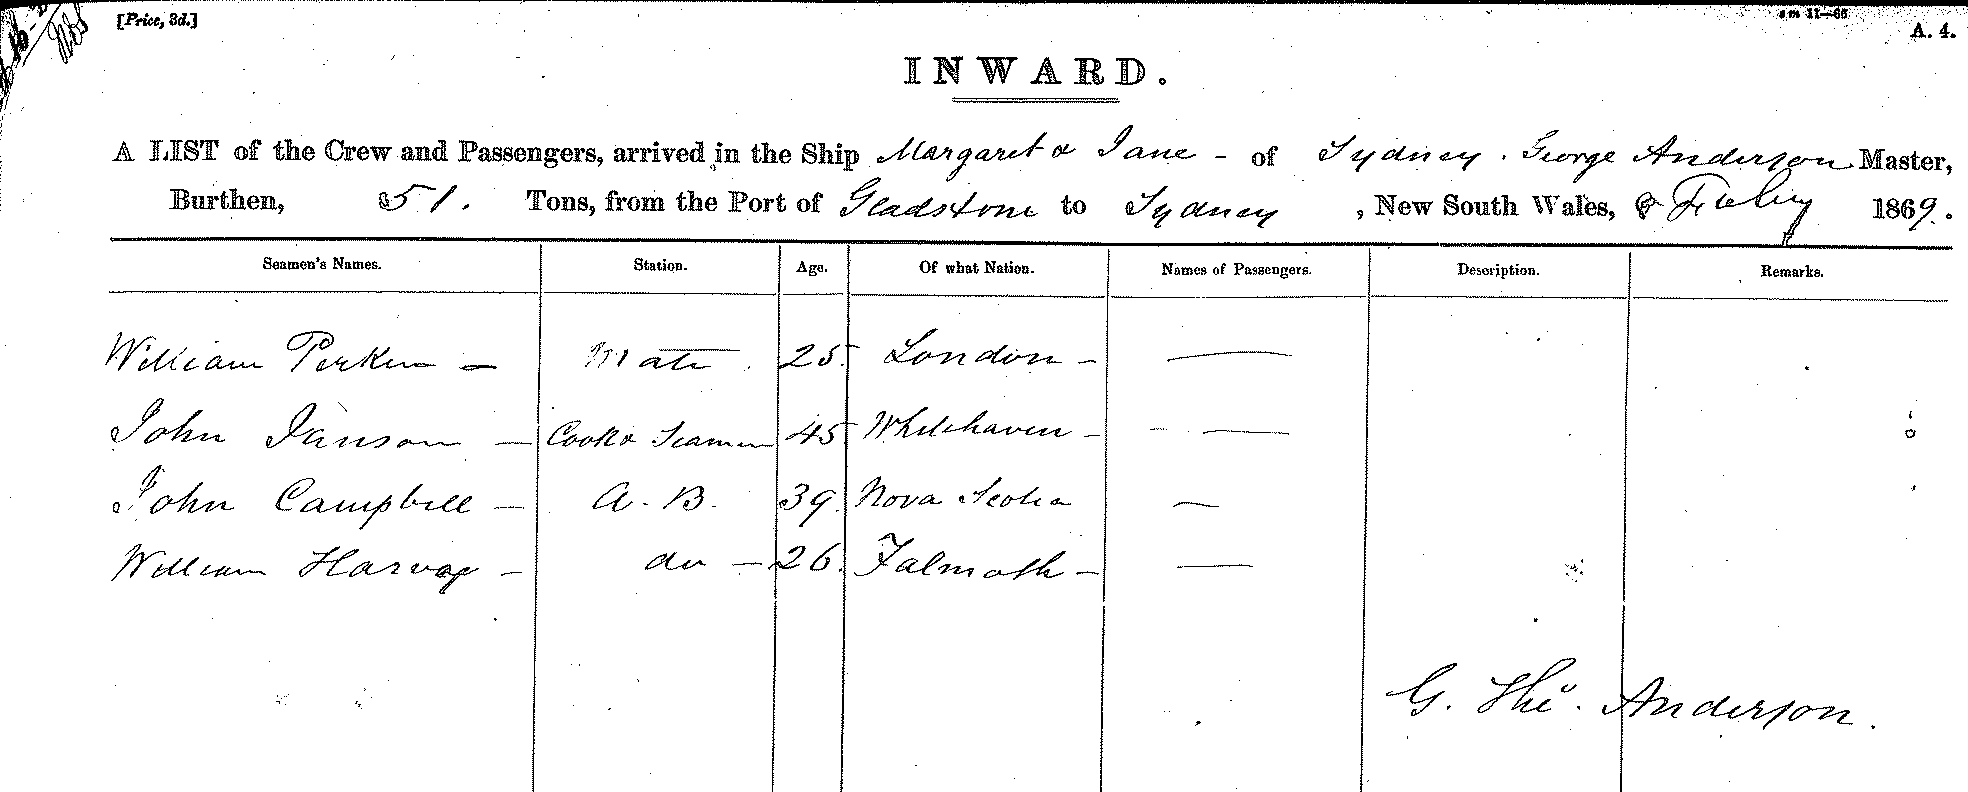 [Price, 3d.]
A. 4.
INWARD.
A LIST of the Crew and Passengers, arrived in the Ship Margaret & Jane - of Sydney. George Anderson Master,
Burthen, 51. Tons, from the Port of Gladstone to Sydney, New South Wales, Feby 1869.
Seamen's Names. Station. Age. Of what Nation. Names of Passengers. Description. Remarks.
William Perkin — Mate. 25. London —
John Janson — Cook & Seaman 45 Whitehaven —
John Campbell — A. B. 39. Nova Scotia
William Harvey — do — 26. Falmoth —
G. Anderson.